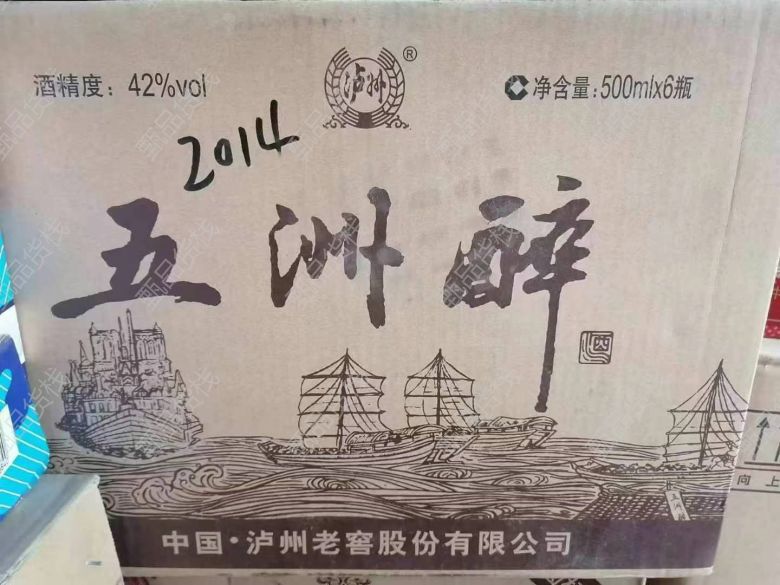 酒精度：42%vol
泸州
®
净含量：500mlx6瓶
2014
五洲醉
五洲醉
中国·泸州老窖股份有限公司
向上
甄品货栈